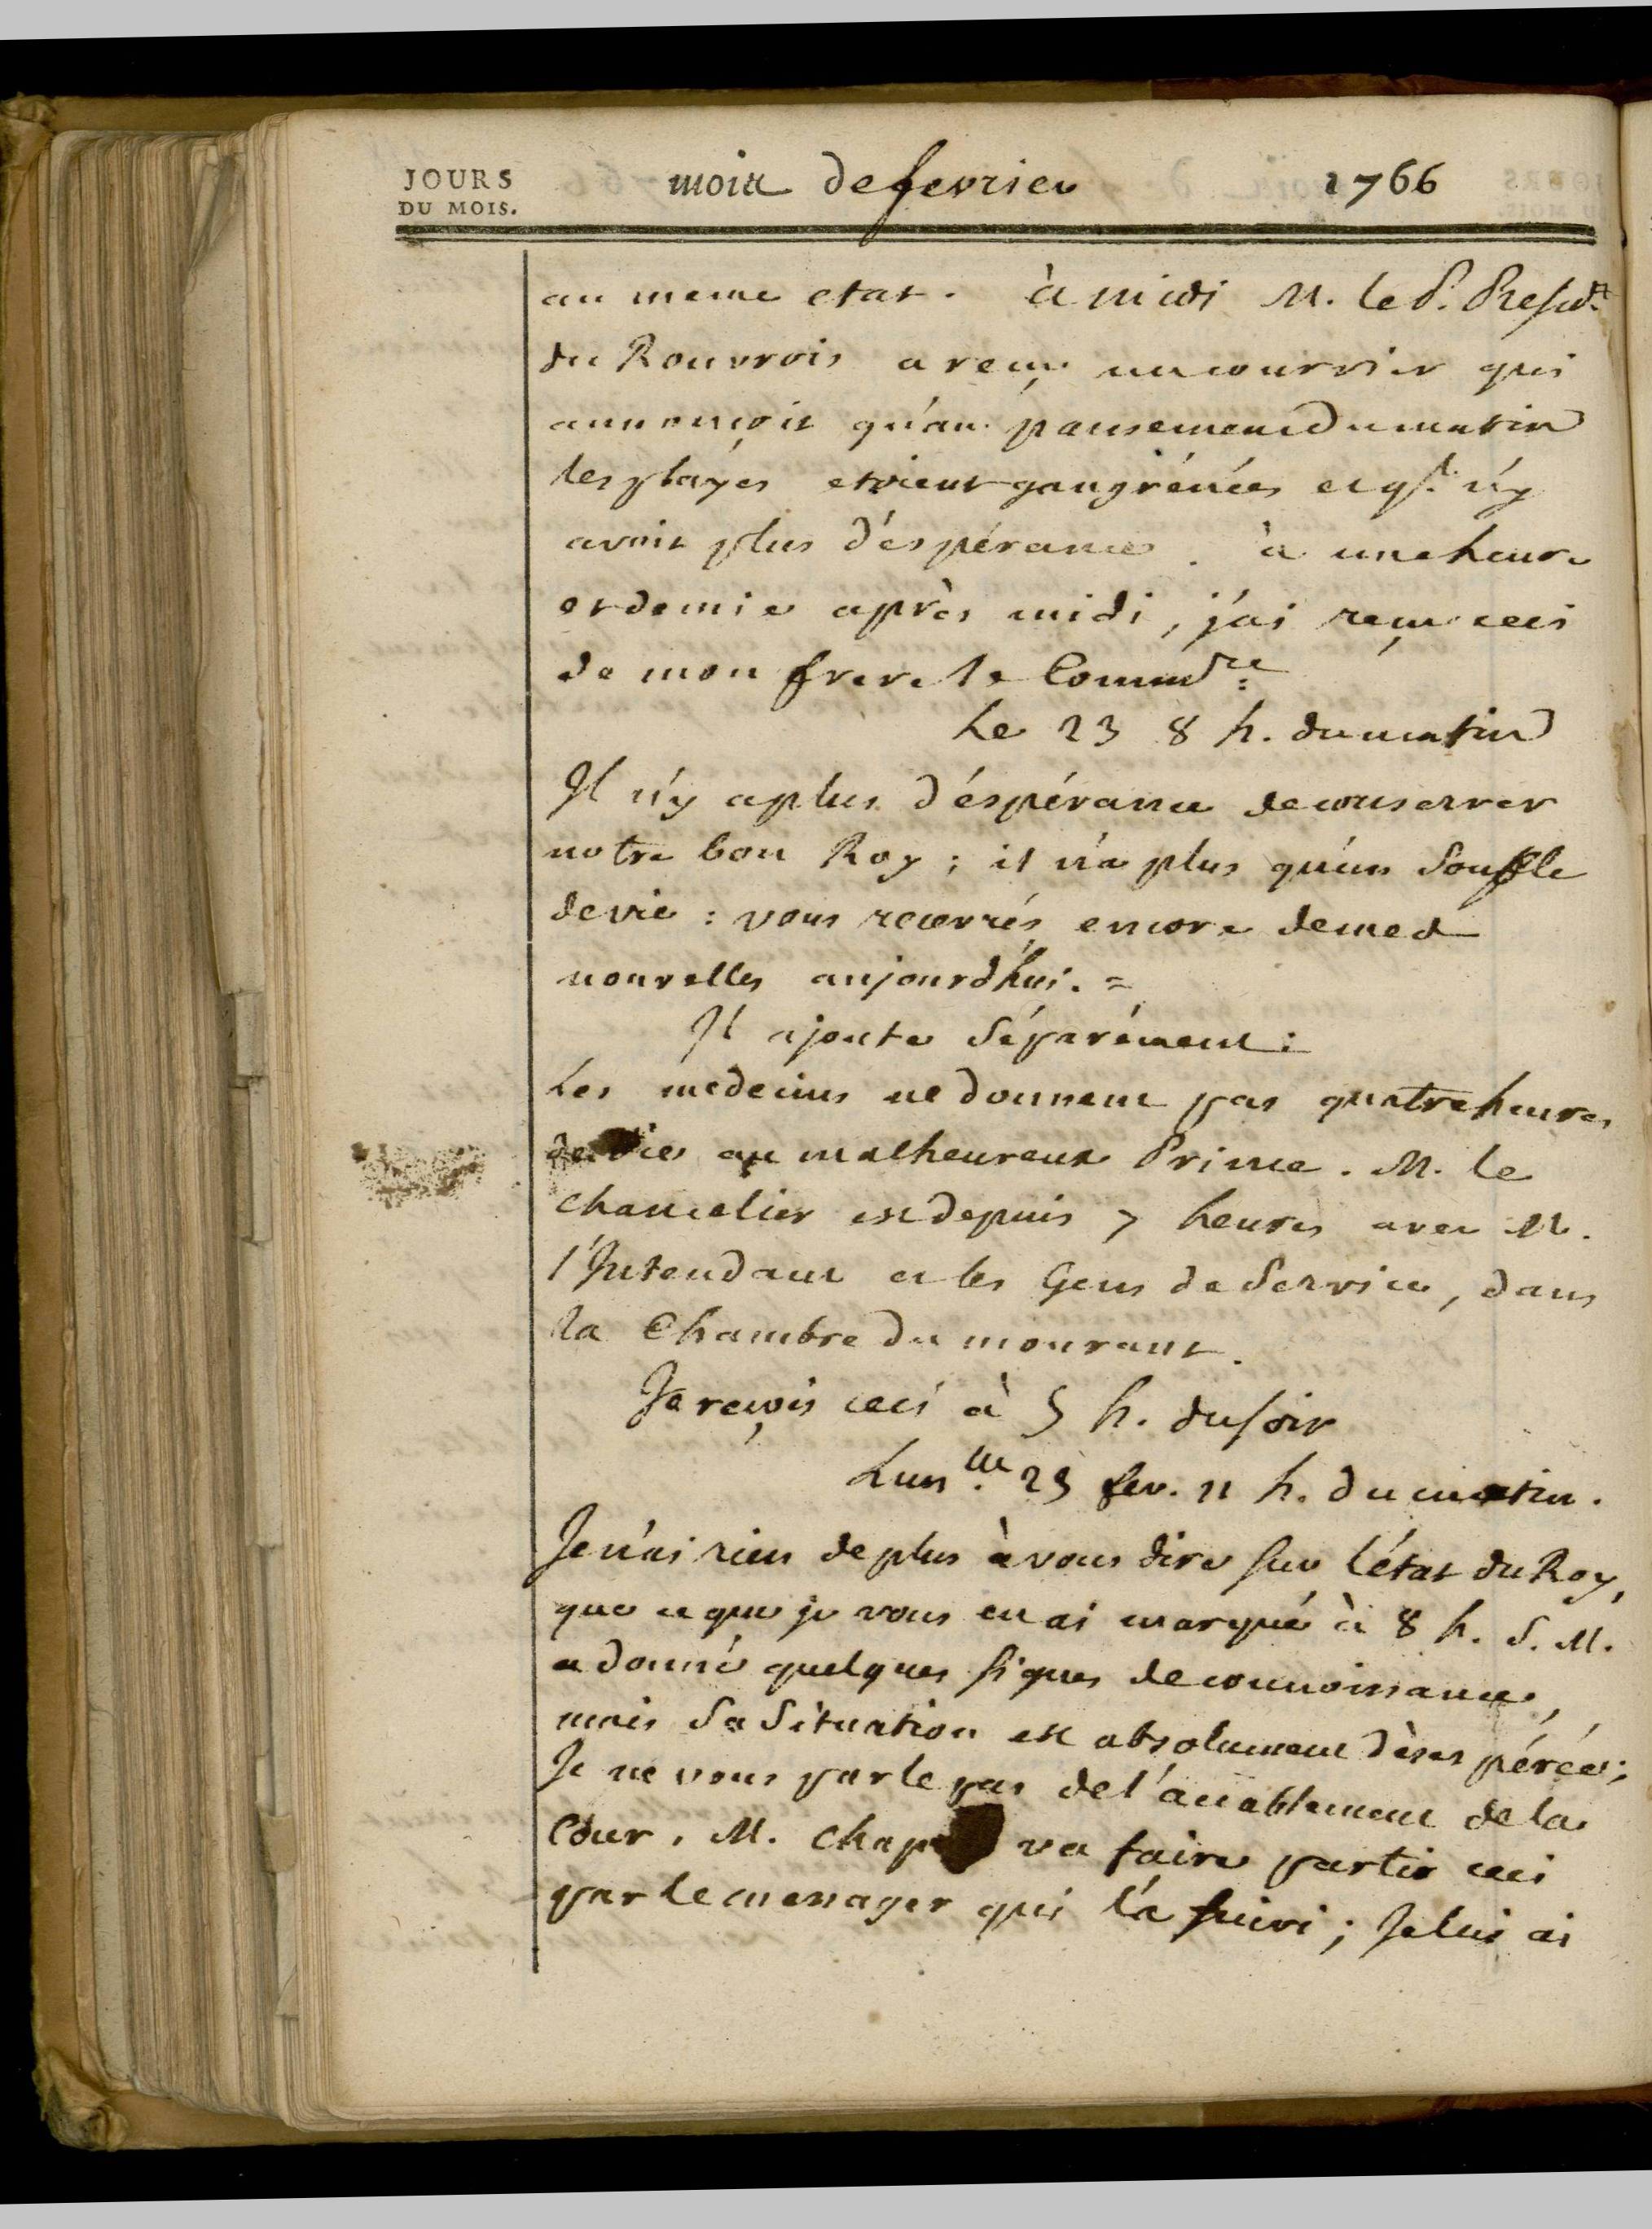 JOURS
DU MOIS.
mois de fevrier 1766
au meme etat. à midi M. le P. Presid.t
du Rouvrois a reçu un courrier qui
annonçoit qu'au pansement du matin
les playes etoient gangrénées et q.l n'y
avoit plus d'éspérance. à une heure
et demie après midi, j'ai reçu ceci
de mon frere le Comm.dre
Le 23 8 h. du matin
Il n'y a plus d'éspérance de conserver
notre bon Roy; il n'a plus qu'un souffle
de vie: vous recevrés encore de mes
nouvelles aujourd'hui. =
Il ajoute séparément:
Les medecins ne donnent pas quatre heures
de vie au malheureux Prince. M. le
chancelier est depuis 7 heures avec M.
l'Intendant et les Gens de Service, dans
la Chambre du mourant.
Je reçois ceci à 5 h. du soir
Lun.lle 23 fev. 11 h. du matin.
Je n'ai rien de plus à vous dire sur l'état du Roy,
que ce que je vous en ai marqué à 8 h. S. M.
a donné quelques signes de connoissance,
mais sa situation est absolument désespérée;
Je ne vous parle pas de l'accablement de la
Cour. M. va faire partir ceci
par le messager qui l'a suivi; Je lui ai